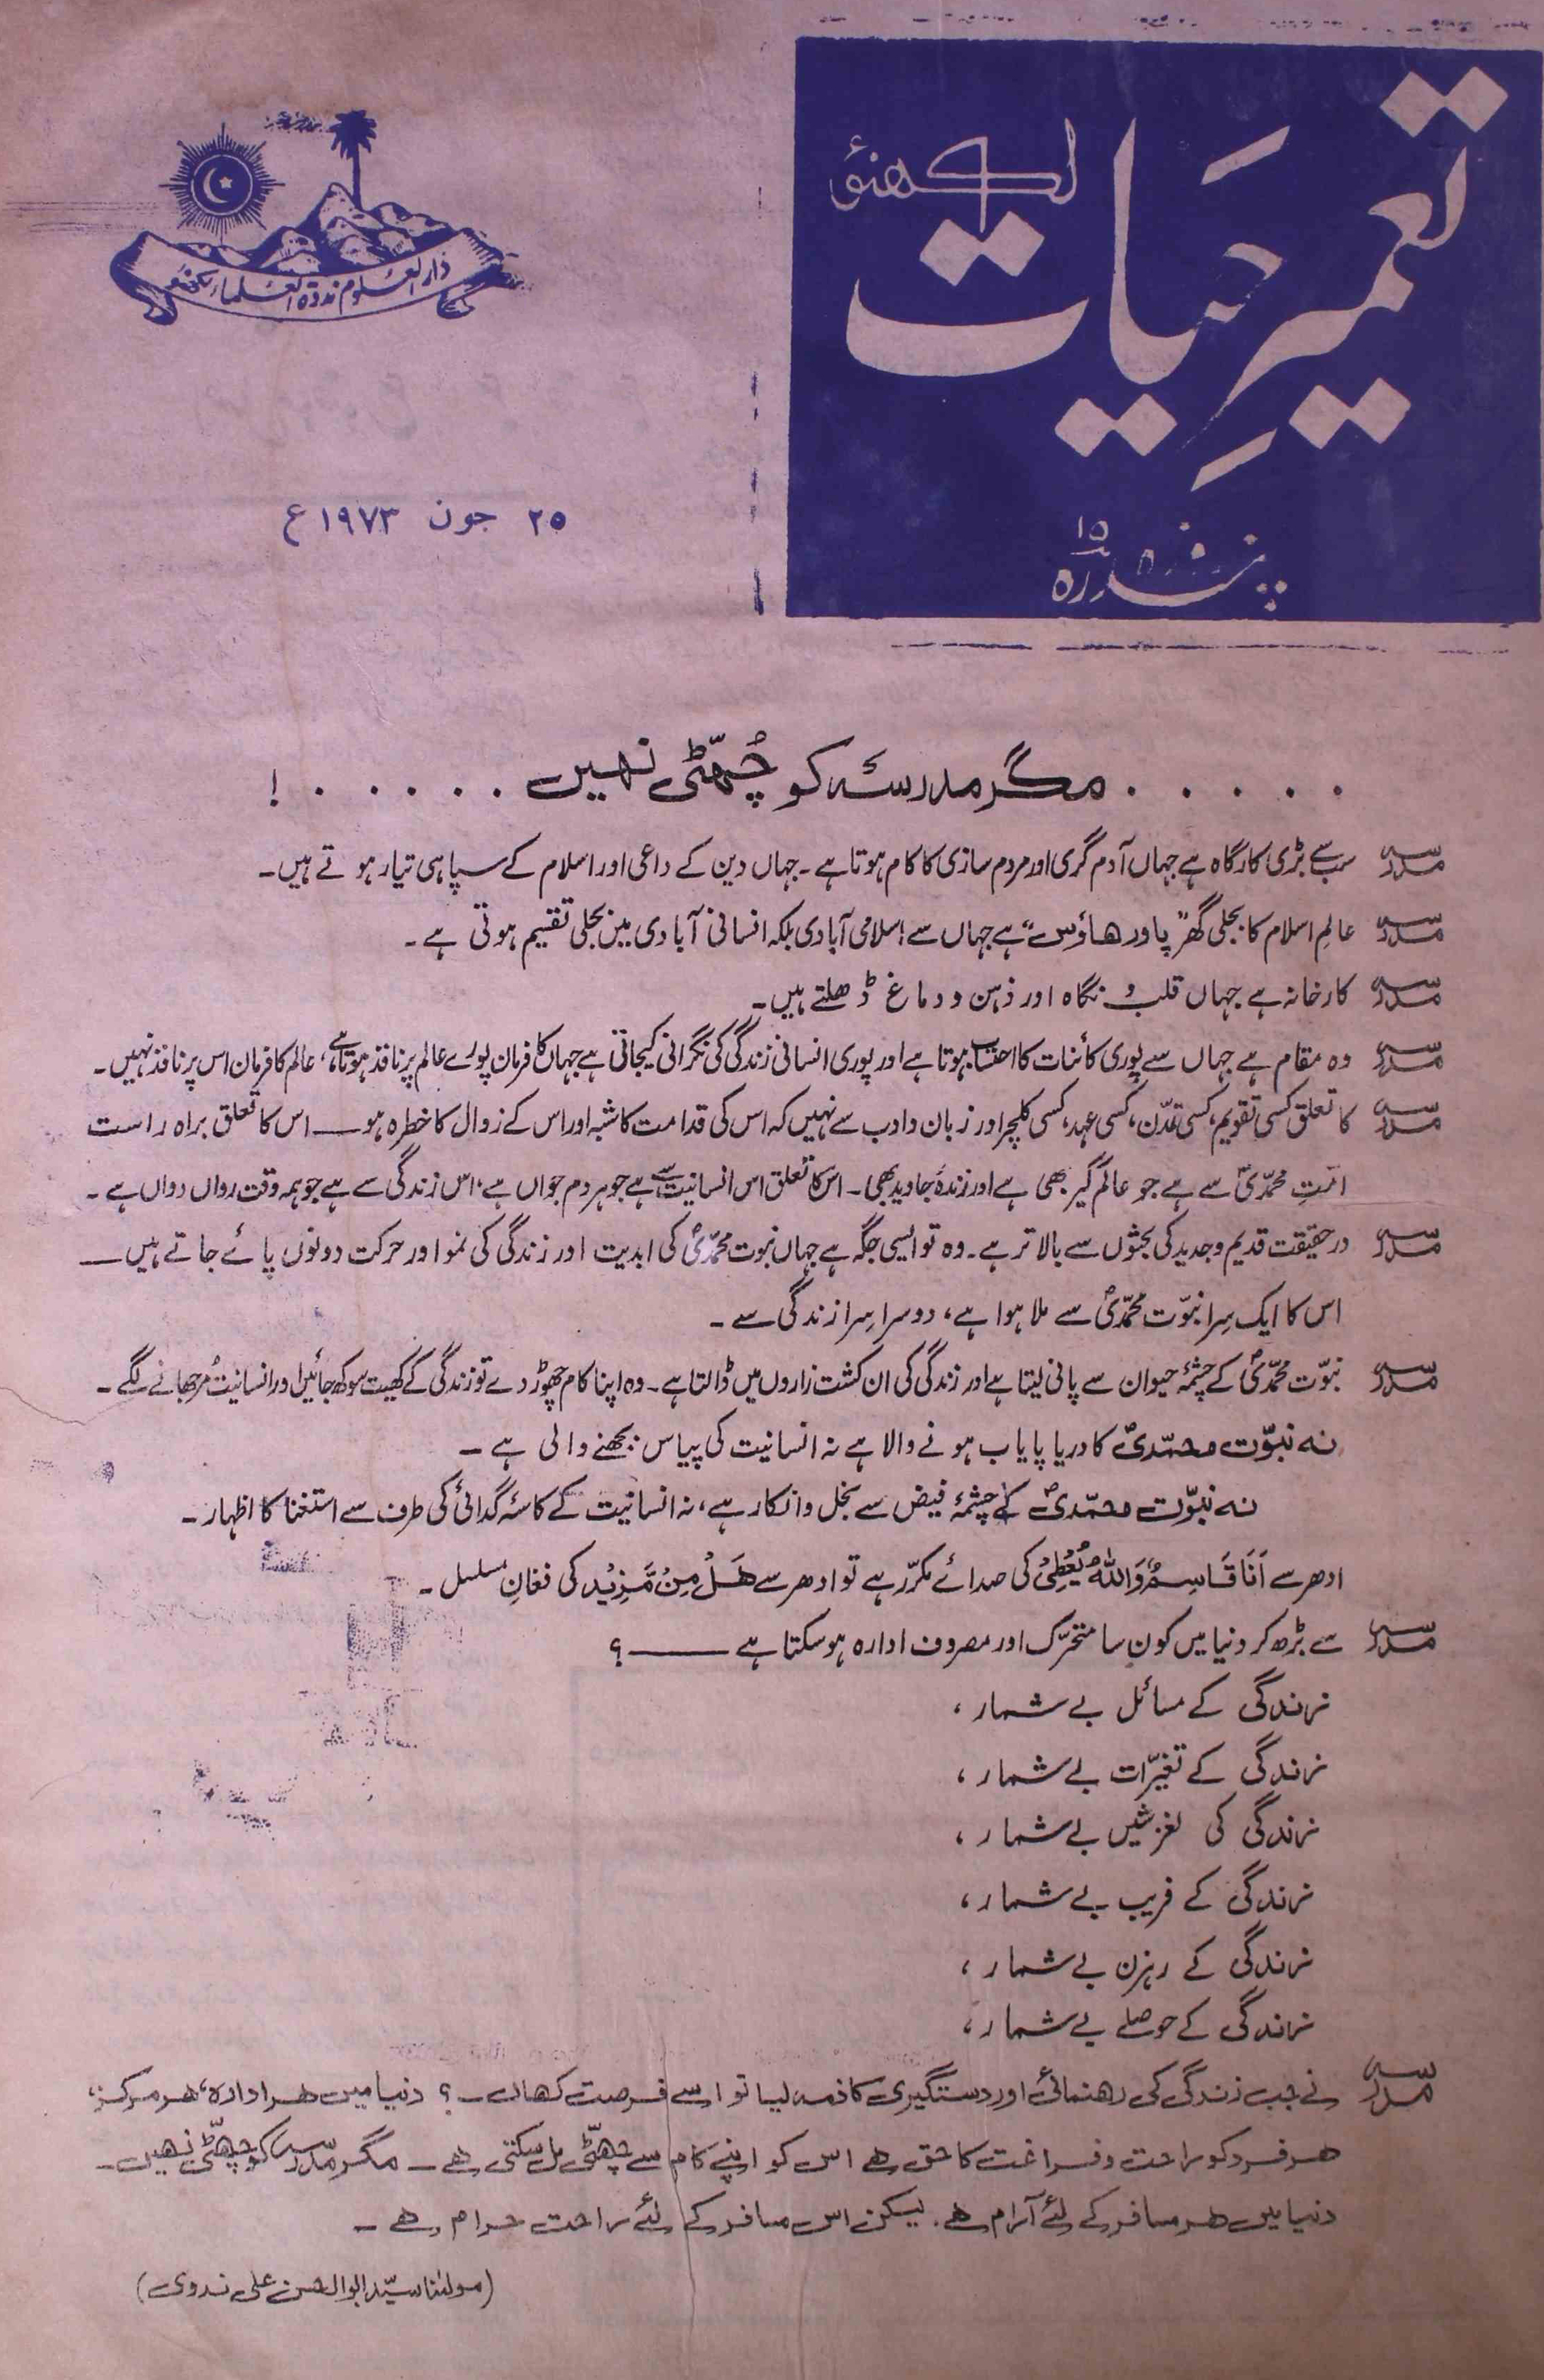 تعمیرِ حَیات
لکھنؤ
پندرہ ۱۵ روزہ
دارالعلوم ندوۃ العلماء لکھنؤ
۲۵ جون ۱۹۷۳ ع
. . . . . مگر مدرسہ کو چُھٹّی نہیں . . . . . !
مدرسہ سب سے بڑی کارگاہ ہے جہاں آدم گری اور مردم سازی کا کام ہوتا ہے۔ جہاں دین کے داعی اور اسلام کے سپاہی تیار ہوتے ہیں۔
مدرسہ عالمِ اسلام کا بجلی گھر "پاور ہاؤس" ہے جہاں سے اسلامی آبادی بلکہ انسانی آبادی میں بجلی تقسیم ہوتی ہے۔
مدرسہ کارخانہ ہے جہاں قلب و نگاہ اور ذہن و دماغ ڈھلتے ہیں۔
مدرسہ وہ مقام ہے جہاں سے پوری کائنات کا احتساب ہوتا ہے اور پوری انسانی زندگی کی نگرانی کیجاتی ہے جہاں کا فرمان پورے عالم پر نافذ ہوتا ہے، عالم کا فرمان اس پر نافذ نہیں۔
مدرسہ کا تعلق کسی تقویم، کسی تمدّن، کسی عہد، کسی کلچر اور زبان و ادب سے نہیں کہ اس کی قدامت کا شبہ اور اس کے زوال کا خطرہ ہو ـــ اس کا تعلق براہ راست
امّتِ محمّدیؐ سے ہے جو عالم گیر بھی ہے اور زندۂ جاوید بھی۔ اس کا تعلق اس انسانیت سے ہے جو ہر دم جواں ہے، اس زندگی سے ہے جو ہمہ وقت رواں دواں ہے۔
مدرسہ درحقیقت قدیم و جدید کی بحثوں سے بالاتر ہے۔ وہ تو ایسی جگہ ہے جہاں نبوت محمّدیؐ کی ابدیت اور زندگی کی نمو اور حرکت دونوں پائے جاتے ہیں ـــ
اس کا ایک سِرا نبوّت محمّدیؐ سے ملا ہوا ہے، دوسرا سِرا زندگی سے۔
مدرسہ نبوّت محمّدیؐ کے چشمۂ حیوان سے پانی لیتا ہے اور زندگی کی ان کشت زاروں میں ڈالتا ہے۔ وہ اپنا کام چھوڑ دے تو زندگی کے کھیت سوکھ جائیں اور انسانیت مُرجھانے لگے۔
نہ نبوّت محمّدیؐ کا دریا پایاب ہونے والا ہے نہ انسانیت کی پیاس بجھنے والی ہے۔
نہ نبوّت محمّدیؐ کے چشمۂ فیض سے بخل و انکار ہے، نہ انسانیت کے کاسۂ گدائی کی طرف سے استغنا کا اظہار۔
ادھر سے اَنَا قَاسِمٌ وَاللّٰہُ یُعْطِیْ کی صدائے مکرّر ہے تو ادھر سے ھَلْ مِنْ مَّزِیْد کی فغانِ مسلسل۔
مدرسہ سے بڑھ کر دنیا میں کون سا متحرّک اور مصروف ادارہ ہوسکتا ہے ـــــ ؟
زندگی کے مسائل بے شمار،
زندگی کے تغیّرات بے شمار،
زندگی کی لغزشیں بے شمار،
زندگی کے فریب بے شمار،
زندگی کے رہزن بے شمار،
زندگی کے حوصلے بے شمار،
مدرسہ نے جب زندگی کی رہنمائی اور دستگیری کا ذمہ لیا تو اسے فرصت کہاں۔؟ دنیا میں ہر ادارہ، ہر مرکز،
ہر فرد کو راحت و فراغت کا حق ہے اس کو اپنے کام سے چھٹّی مل سکتی ہے۔ مگر مدرسہ کو چھٹّی نہیں۔
دنیا میں ہر مسافر کے لئے آرام ہے۔ لیکن اس مسافر کے لئے راحت حرام ہے۔
(مولٰنا سیّد ابوالحسن علی ندوی)